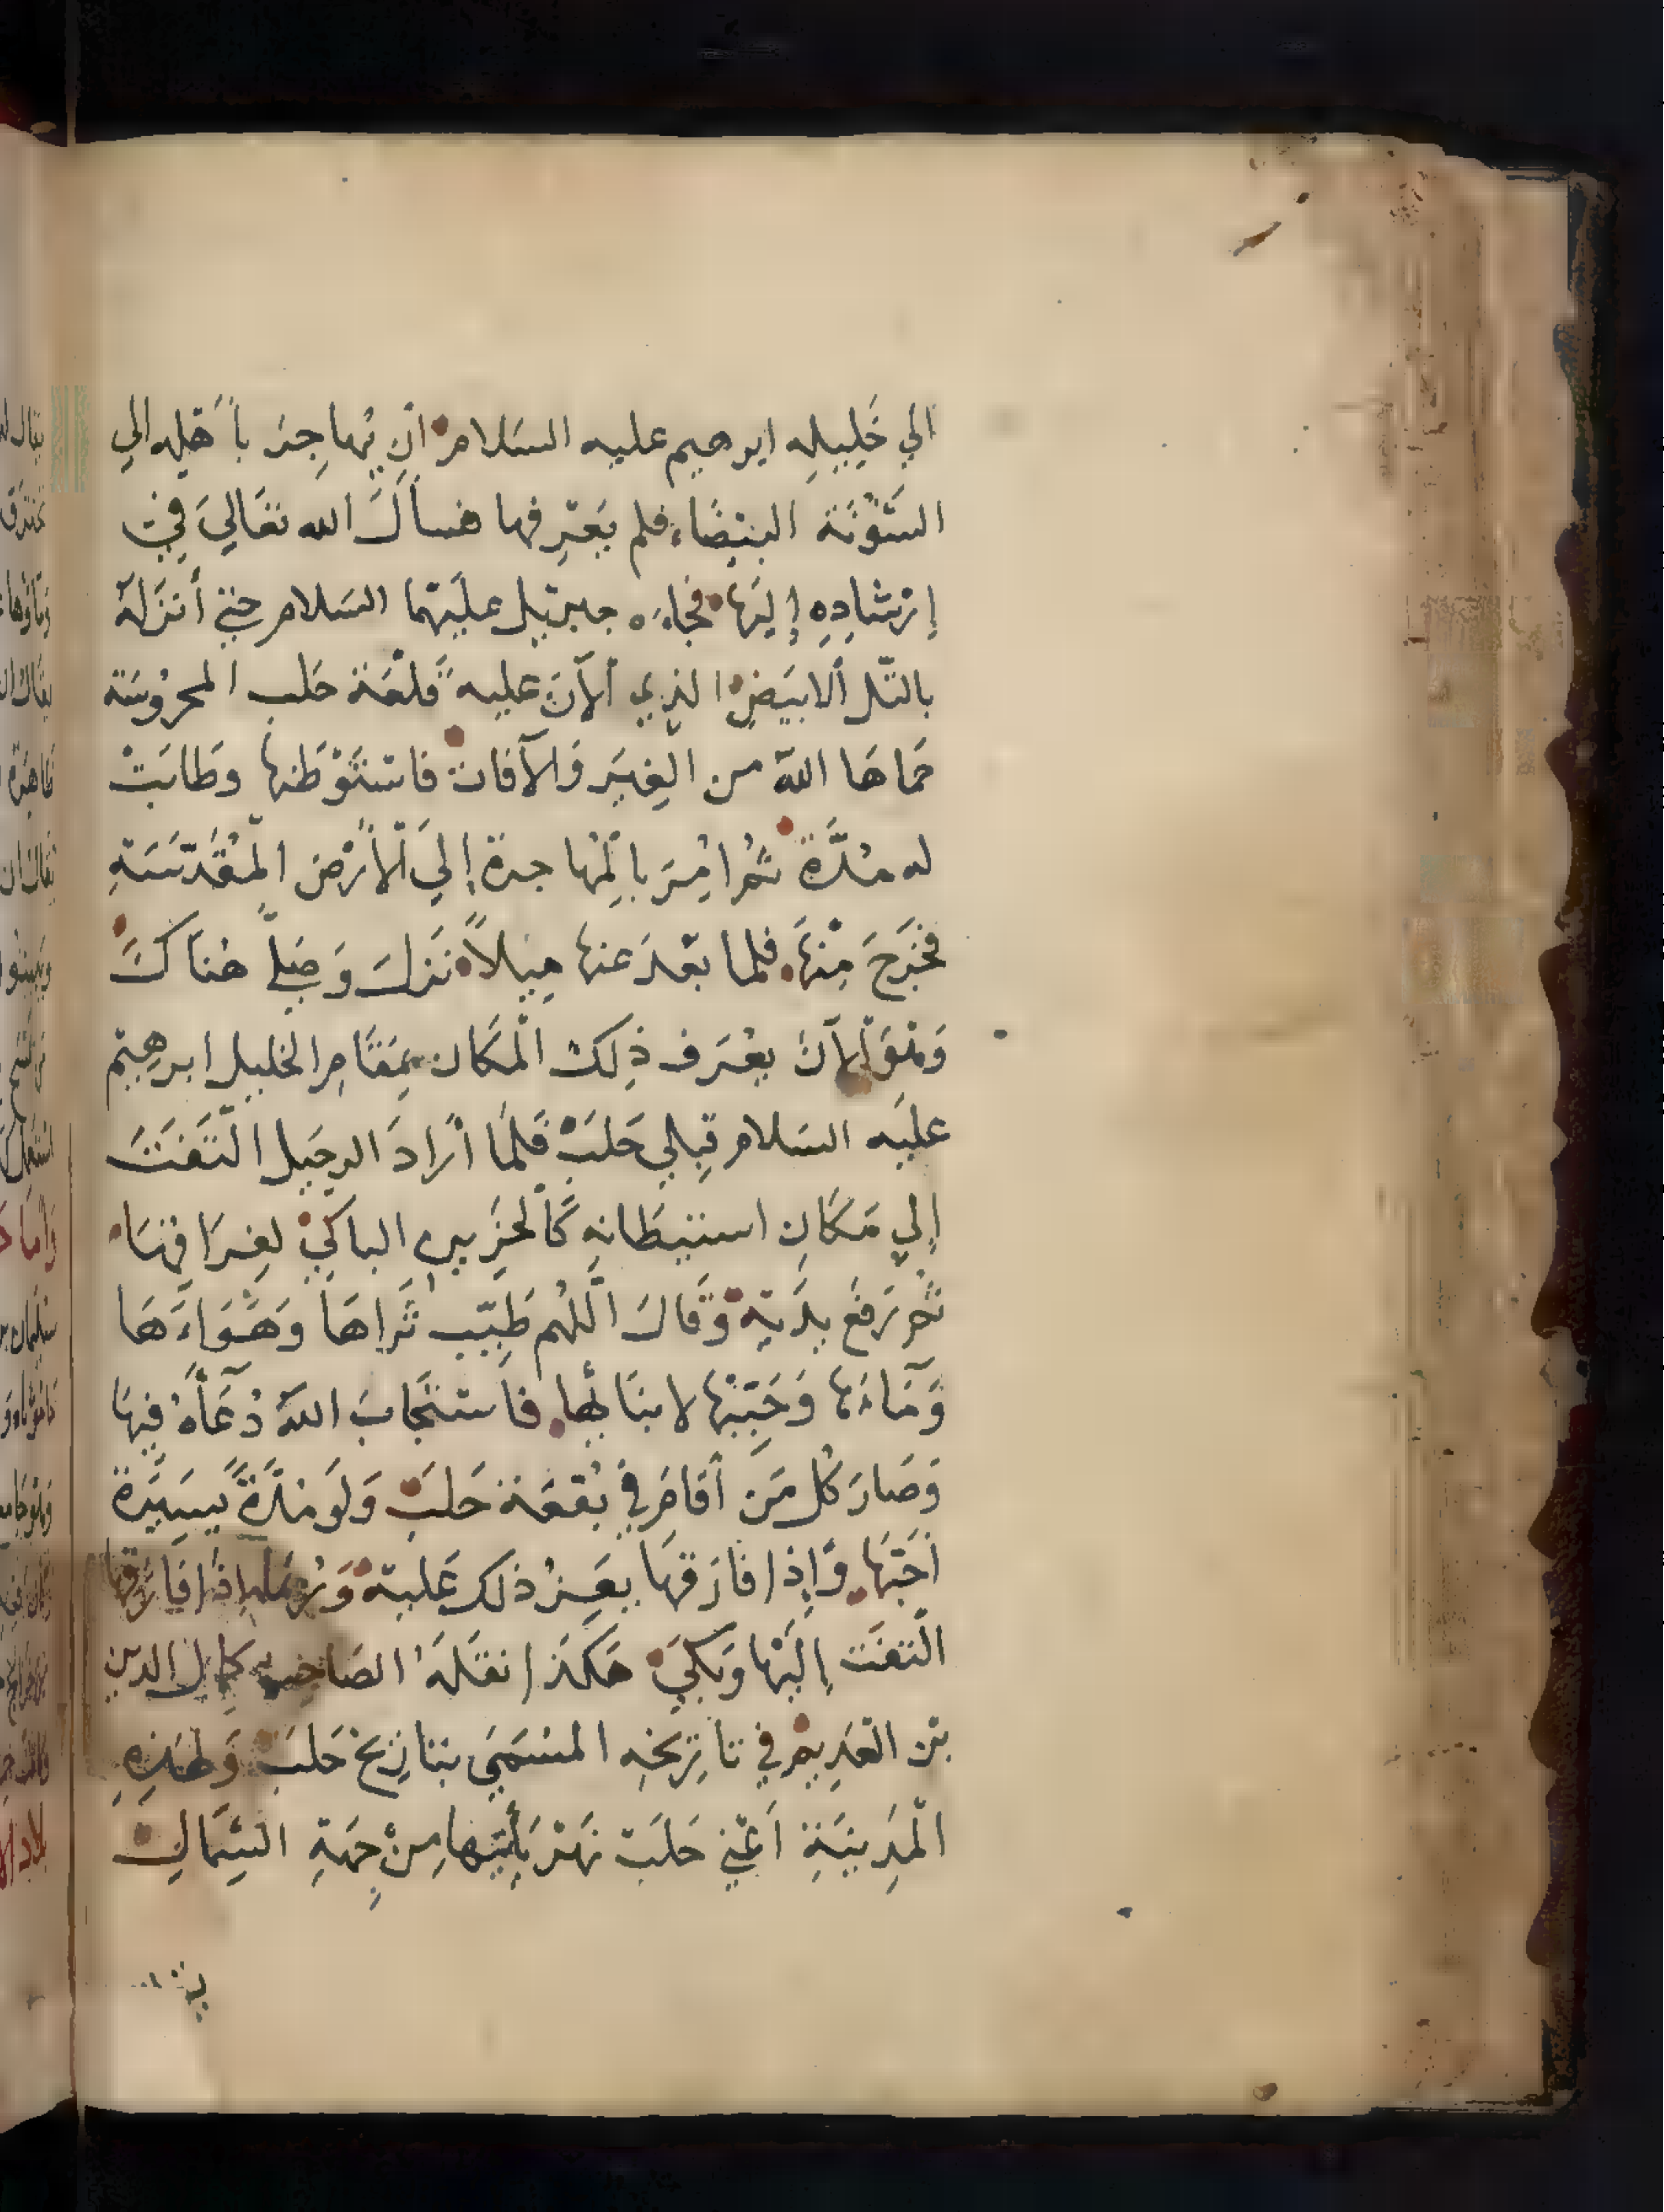 الي خَلِيلِه ابرهيم عليه السَلام ان يُهاجِرَ بأَهْلِه الي
الشَّوْنَة البيْضَاء فلم يَعْرِفها فسأَلَ الله تعَالَى في
إرْشادِهِ إليَها فجاءَه جبرئيل علَيْهما السَلام حتى أنزَلهُ
بالتّل الابيَض الذي الآنَ عليه قلعَة حَلب المحرُوسَة
حَماهَا اللّه من الغِيَر وَالآفات فاسْتَوْطَنها وطَابَتْ
له مُدَّة ثُمّ اُمِرَ بالمُهاجرة إلَي الأَرْض المُقَدّسَةِ
فخَرَجَ مِنْهَا فلما بَعُدَ عنها مِيلاً نَزلَ وَصَلّي هُنَاكَ
وَهْوَ الآنَ يعْرَف ذلِكَ المَكان بمَقَامِ الخليل ابرهِيْم
عليْه السَلام قِبلي حَلَبْ فَلمَّا أرَادَ الرحِيل التَفَتَ
إلي مَكَانِ استيطَانِهِ كَالحَزِينِ الباكيْ لِفِرَاقِهَا
ثُم رَفعَ يدَيْه وَقَالَ اللّهُم طَيّب ثَرَاهَا وَهَوَاءَهَا
وَمَاءَهَا وَحَبّبْها لابنَائها فَاسْتَجَابَ اللّهُ دُعَآهُ فِيهَا
وَصَارَ كُل مَن أقَامَ فِي بُقعَة حَلَبَ وَلَو مُدَّةً يَسِيْرَة
أحَبّهَا وَإذا فَارَقهَا يعَزُّ ذلك عَليْهْ وَرُبمَا إذَا فَارَقها
التَفَت إلَيْها وَبَكَي هَكَذا نقَلَهُ الصَاحِب كمال الدين
بْن العَدِيم في تَارِيخِه المسَمَي بتَارِيخ حَلَبَ وَلِهَذِهِ
المَدِينَةِ اَعْنِي حَلَبَ نَهْر يَأْتِيهَا مِنْ جِهَةِ الشِمَالِ